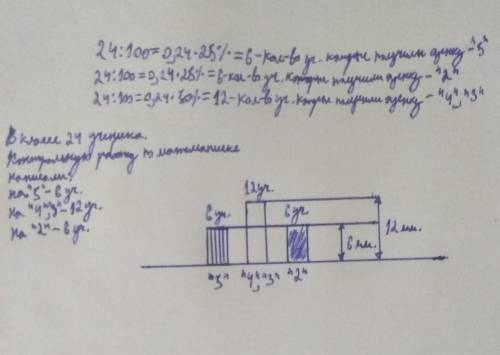 24:100=0,24•25%=6-кол-во уч. которые получили оценку-"5"
24:100=0,24•25%=6-кол-во уч. которые получили оценку-"2"
24:100=0,24•50%=12-кол-во уч. которые получили оценку-"4","3"
В классе 24 ученика.
Контрольную работу по математике
написали:
на "5"-6 уч.
на "4","3"-12 уч.
на "2"-6 уч.
12 уч.
6 уч. 6 уч.
12 мм.
6 мм.
"5" "4","3" "2"